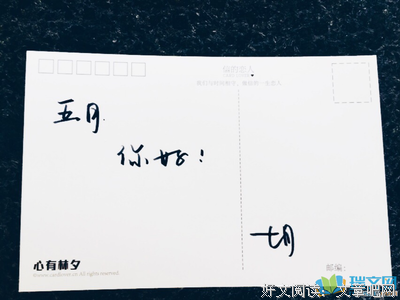 五月
你好!
七月
心有林夕
邮编:
好文阅读 文章吧网
瑞文网